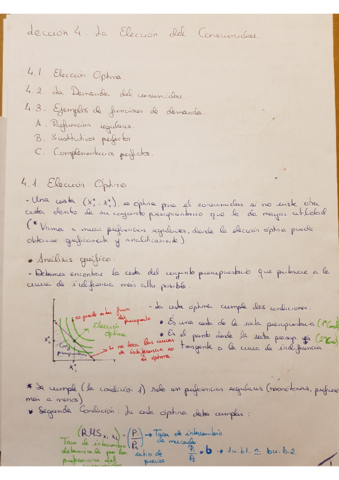 Lección 4. La Elección del Consumidor.
4.1 Elección Óptima
4.2 La Demanda del consumidor.
4.3. Ejemplos de funciones de demanda.
A. Preferencias regulares.
B. Sustitutivos perfectos
C. Complementarios perfectos.
4.1 Elección Óptima
- Una cesta (X₁*, X₂*), es óptima para el consumidor si no existe otra
cesta dentro de su conjunto presupuestario que le dé mayor utilidad
(* Vamos a usar preferencias regulares, donde la elección óptima puede
obtenerse gráficamente y analíticamente)
• Análisis gráfico:
- Debemos encontrar la cesta del conjunto presupuestario que pertenece a la
curva de indiferencia más alta posible.
no puede estar fuera
del presupuesto
Elección
óptima
si no toca las curvas
de indiferencia no es
óptima
- La cesta óptima cumple dos condiciones:
• Es una cesta de la recta presupuestaria
• Es el punto donde la recta presup. es
tangente a la curva de indiferencia
* Se cumple (la condición 1) solo en preferencias regulares (monótonas,
más a menos)
• Segunda Condición: la cesta óptima debe cumplir:
(RMS x₁, x₂) = (P₁/P₂) → Tasa de intercambio
de mercado
Tasa de intercambio
determinada por las
preferencias del
ratio de
precios
P₁/P₂ · b → 1u.b1 = bu.b.2